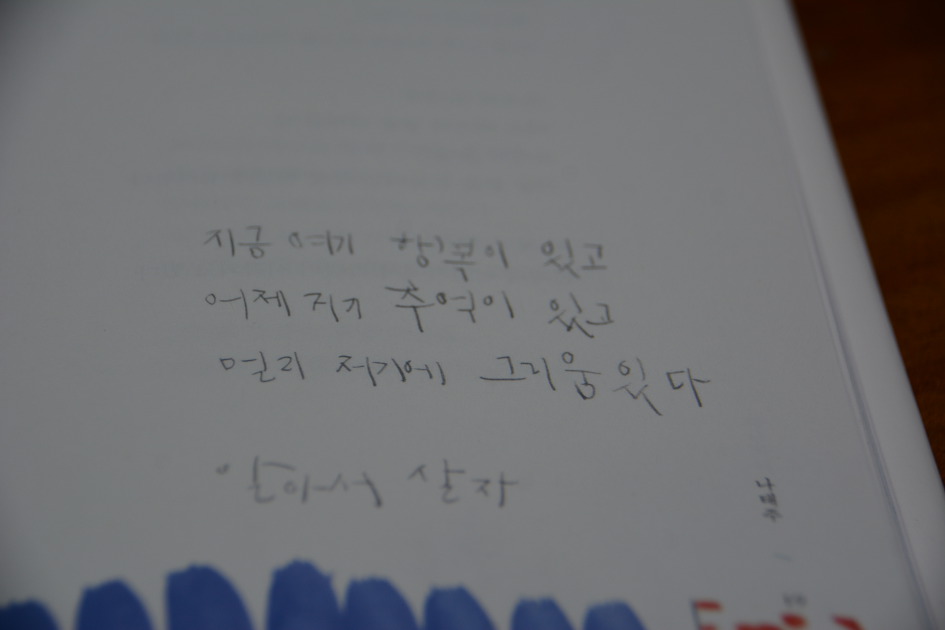 지금 여기 행복이 있고
어제 저기 추억이 있고
멀리 저기에 그리움 있다
살자
나태주